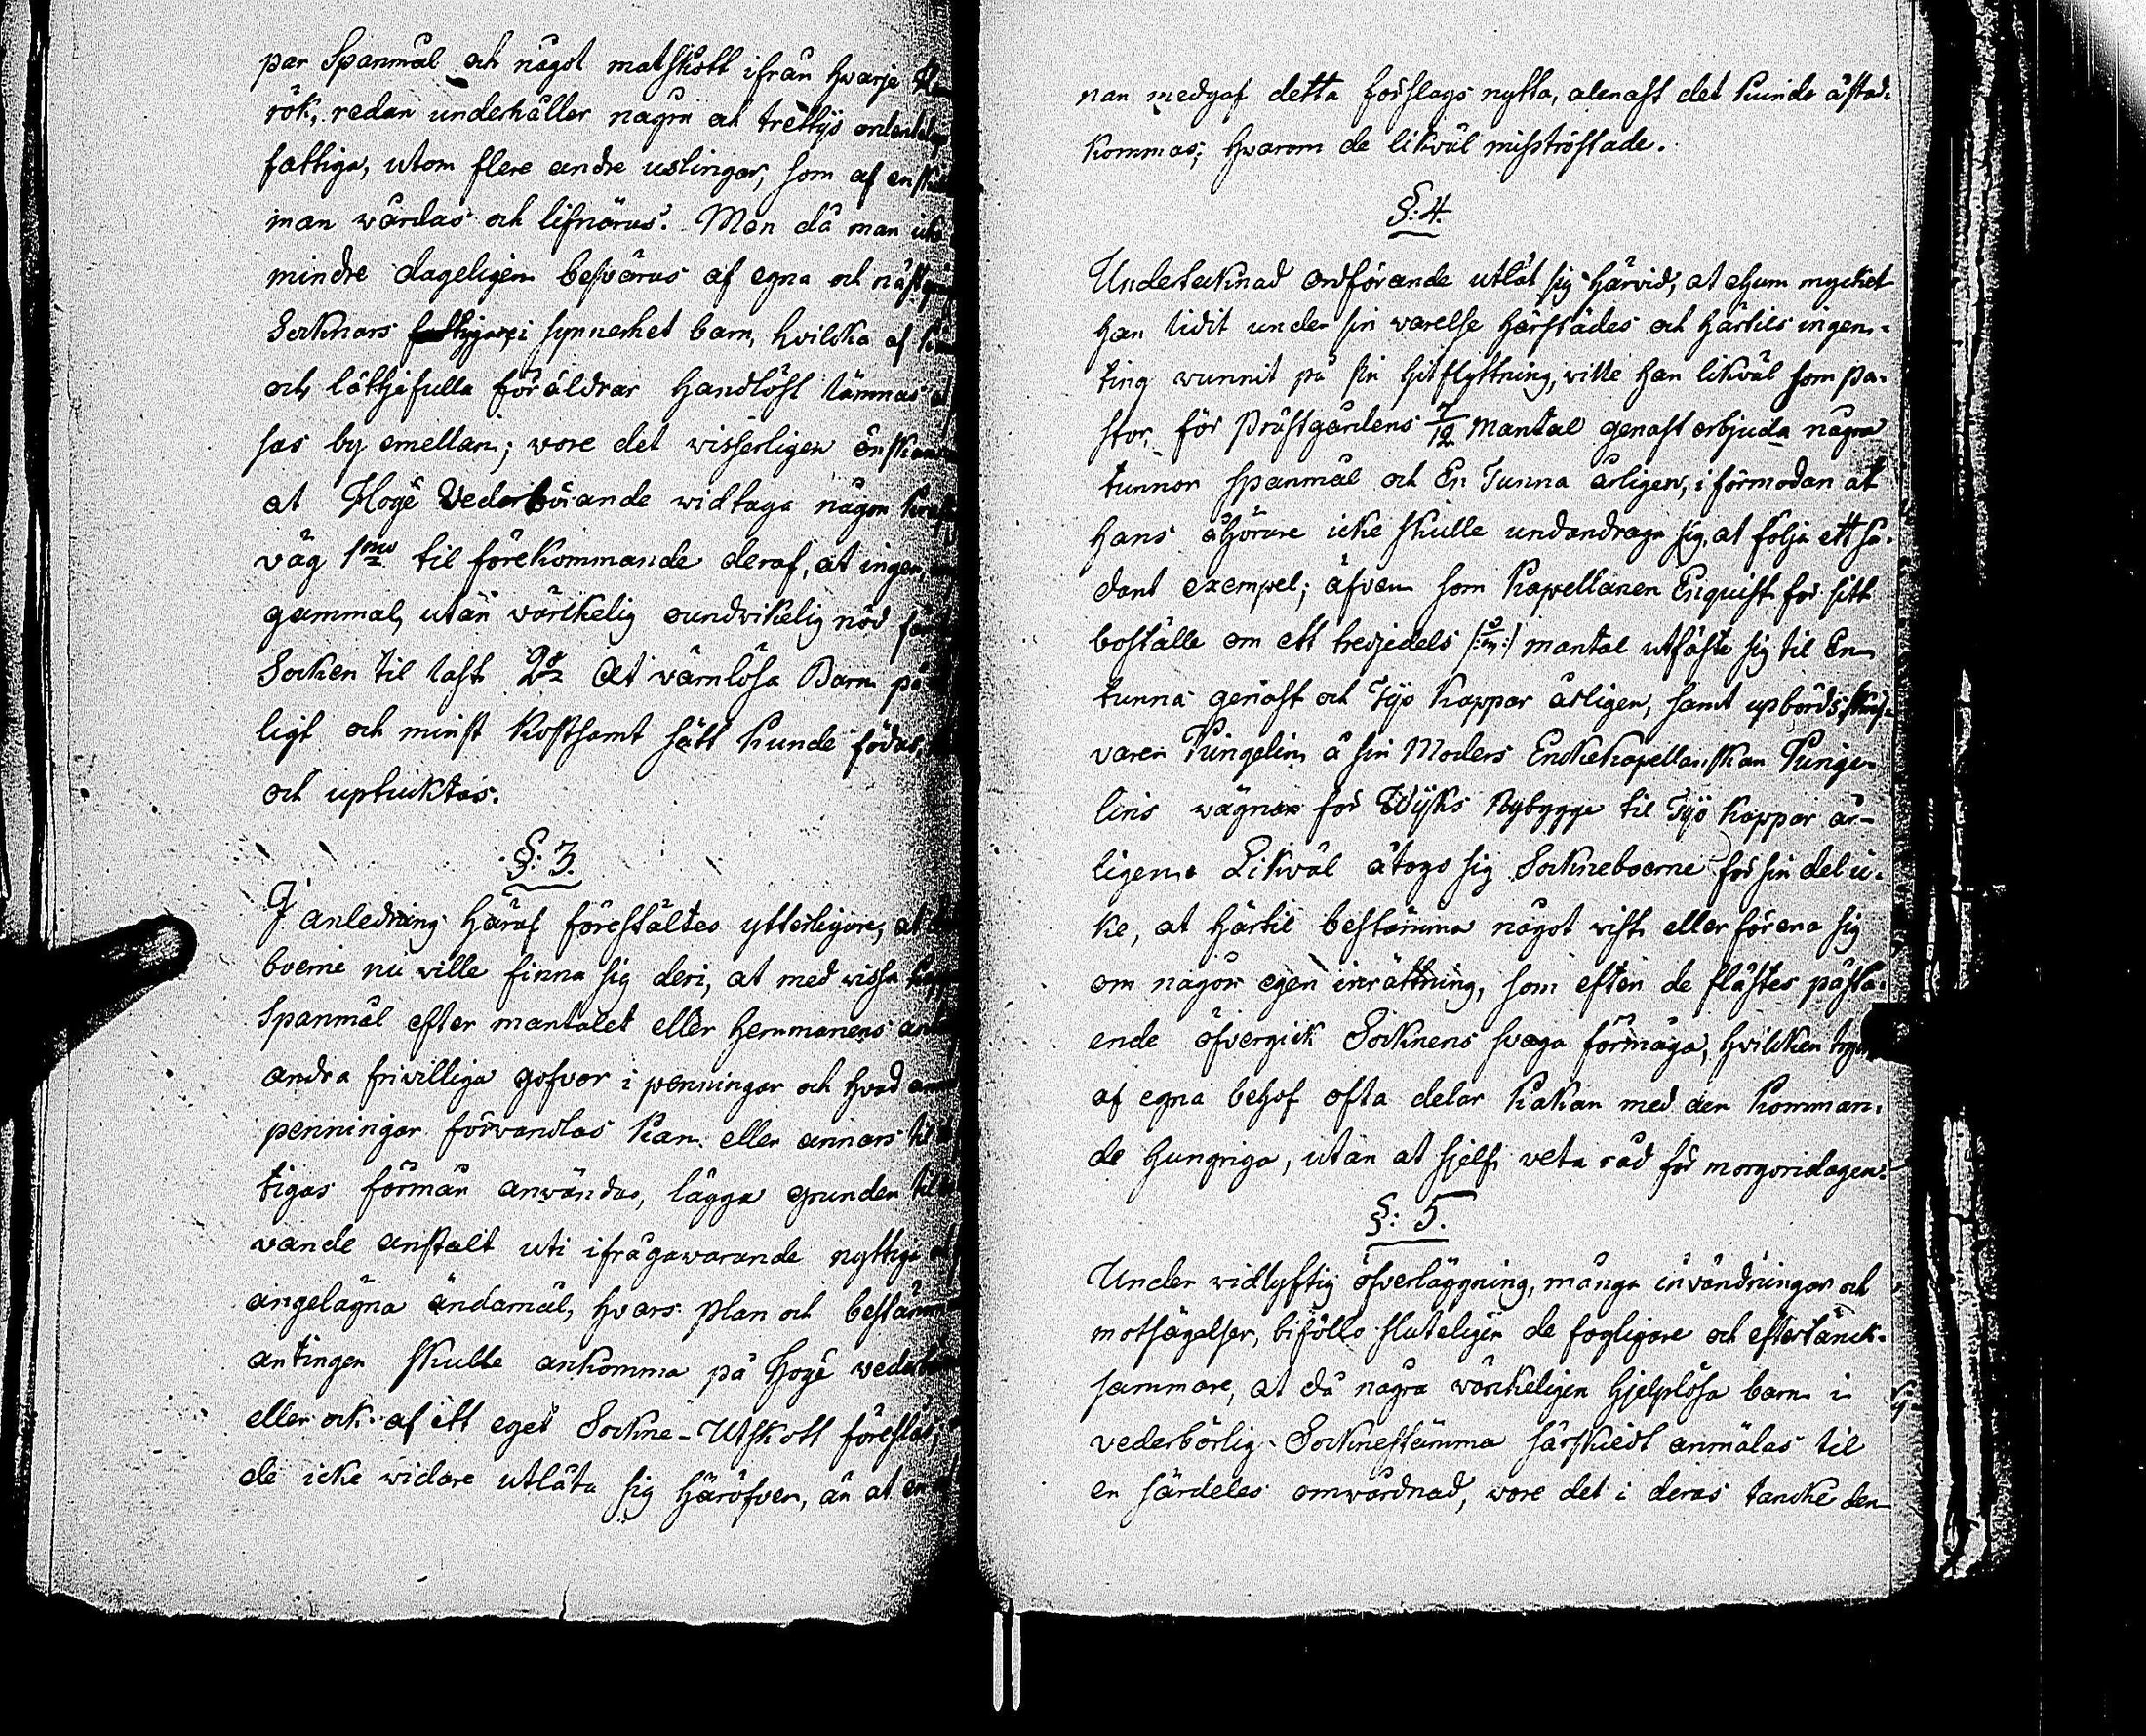 par Spanmål och något matskott ifrån hwarje
rök, redan underhåller några och trettijo
fattiga, utom flere andre uslingar, som af
man wårdas och lifnäras. Men då man
mindre dageligen beswäras af egna och
Socknars fattigare, i synnerhet barn, hvilcka af
och lättjefulla föräldrar handlöst lämnas
sas by emellan; wore det wisserligen
at Höge Vederbörande widtaga någon
väg 1mo til förekommande deraf, at ingen
gammal, utan värckelig oundvikelig nöd
Socken til last 2do At värnlösa Barn
ligt och minst kostsamt sätt kunde födas,
och uptucktas.
§: 3.
I anledning häraf föreställtes ytterligare, at
boerne nu wille finna sig deri, at med wissa
Spanmål efter mantalet eller hemmanens
andra frivilliga gofvor i penningar och hvad
penningar förvandlas kan eller annars til
tigas förmån användas, lägga grunden til
vande anstalt uti ifrågavarande nyttiga
angelägna ändamål, hvars plan och
antingen skulle ankomma på höge
eller ock af ett eget Sockne-Utskott föreslås,
de icke widare utlåta sig häröfver, än at
nan medgaf detta förslags nytta, alenast det kunde åstad-
kommas; hwarom de likväl misströstade.
§: 4.
Undertecknad ordförande utlåt sig härvid, at ehuru mycket
han lidit under sin warelse härstädes och härtils ingen-
ting wunnit på sin hitflyttning, wille han likväl som pa-
stor, för Prästgårdens 7/12 Mantal genast erbjuda några
tunnor spanmål och En Tunna årligen, i förmodan at
hans åhörare icke skulle undandraga sig, at följa ett så-
dant exempel; äfven som Kapellanen Enquist för sitt
boställe om ett tredjedels mantal utfäste sig til En
tunna genast och Tijo kappar årligen, samt upbörds
varen Pungelin å sin Moders Enckekapellanskan Punge-
lins wägnar för Wijks Nybygge til Tijo kappar år-
ligen. Likväl åtogo sig Sockneboerne för sin del ic-
ke, at härtil bestämma något wist eller förena sig
om någon egen inrättning, som efter de flästes påstå-
ende öfvergick Socknens svaga förmåga, hvilcken
af egna behof ofta delar kakan med den komman-
de hungriga, utan at sjelf veta råd för morgondagen.
§: 5.
Under widlyftig öfverläggning, många invändningar och
motsägelser, biföllo sluteligen de fogligare och eftertänck-
sammare, at då några wärckeligen hjelplösa barn i
vederbörlig Socknestämma särskiedt anmälas til
en särdeles omwårdnad, wore det i deras tancke den